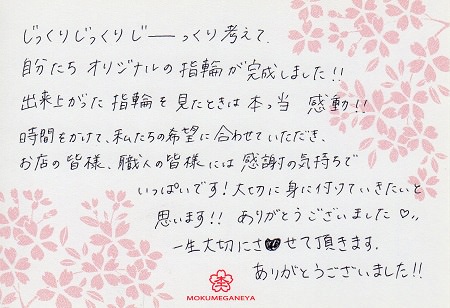 じっくりじっくりじーーっくり考えて、
自分たち オリジナルの指輪が完成しました!!
出来上がった 指輪を見たときは 本っ当 感動!!
時間をかけて、私たちの希望に合わせていただき、
お店の皆様、職人の皆様には 感謝の気持ちで
いっぱいです!大切に身に付けていきたいと
思います!! ありがとうございました♡。。
一生大切にさせて頂きます。
ありがとうございました!!
MOKUMEGANEYA